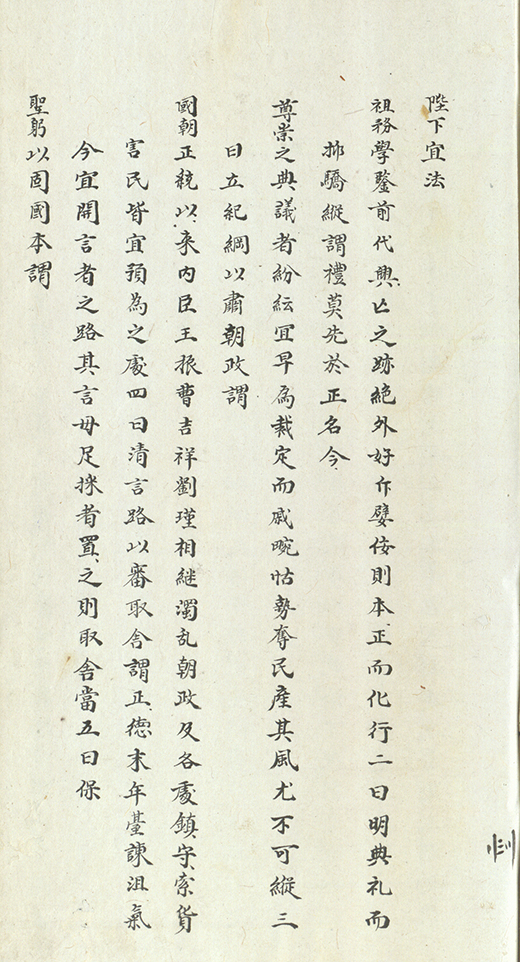 陛下宜法
祖務學鑒前代興亡之跡絶外好斥嬖佞則本正而化行二曰明典礼而
抑驕縱謂禮莫先於正名今
尊崇之典議者紛紜宜早為裁定而戚畹怙勢奪民產其風尤不可縱三
曰立紀綱以肅朝政謂
國朝正統以來内臣王振曹吉祥劉瑾相継濁乱朝政及各處鎮守索貨
害民皆宜預為之處四曰清言路以審取舎謂正德末年臺諫沮氣
今宜開言者之路其言毋足採者置之則取舎當五曰保
聖躬以固國本謂